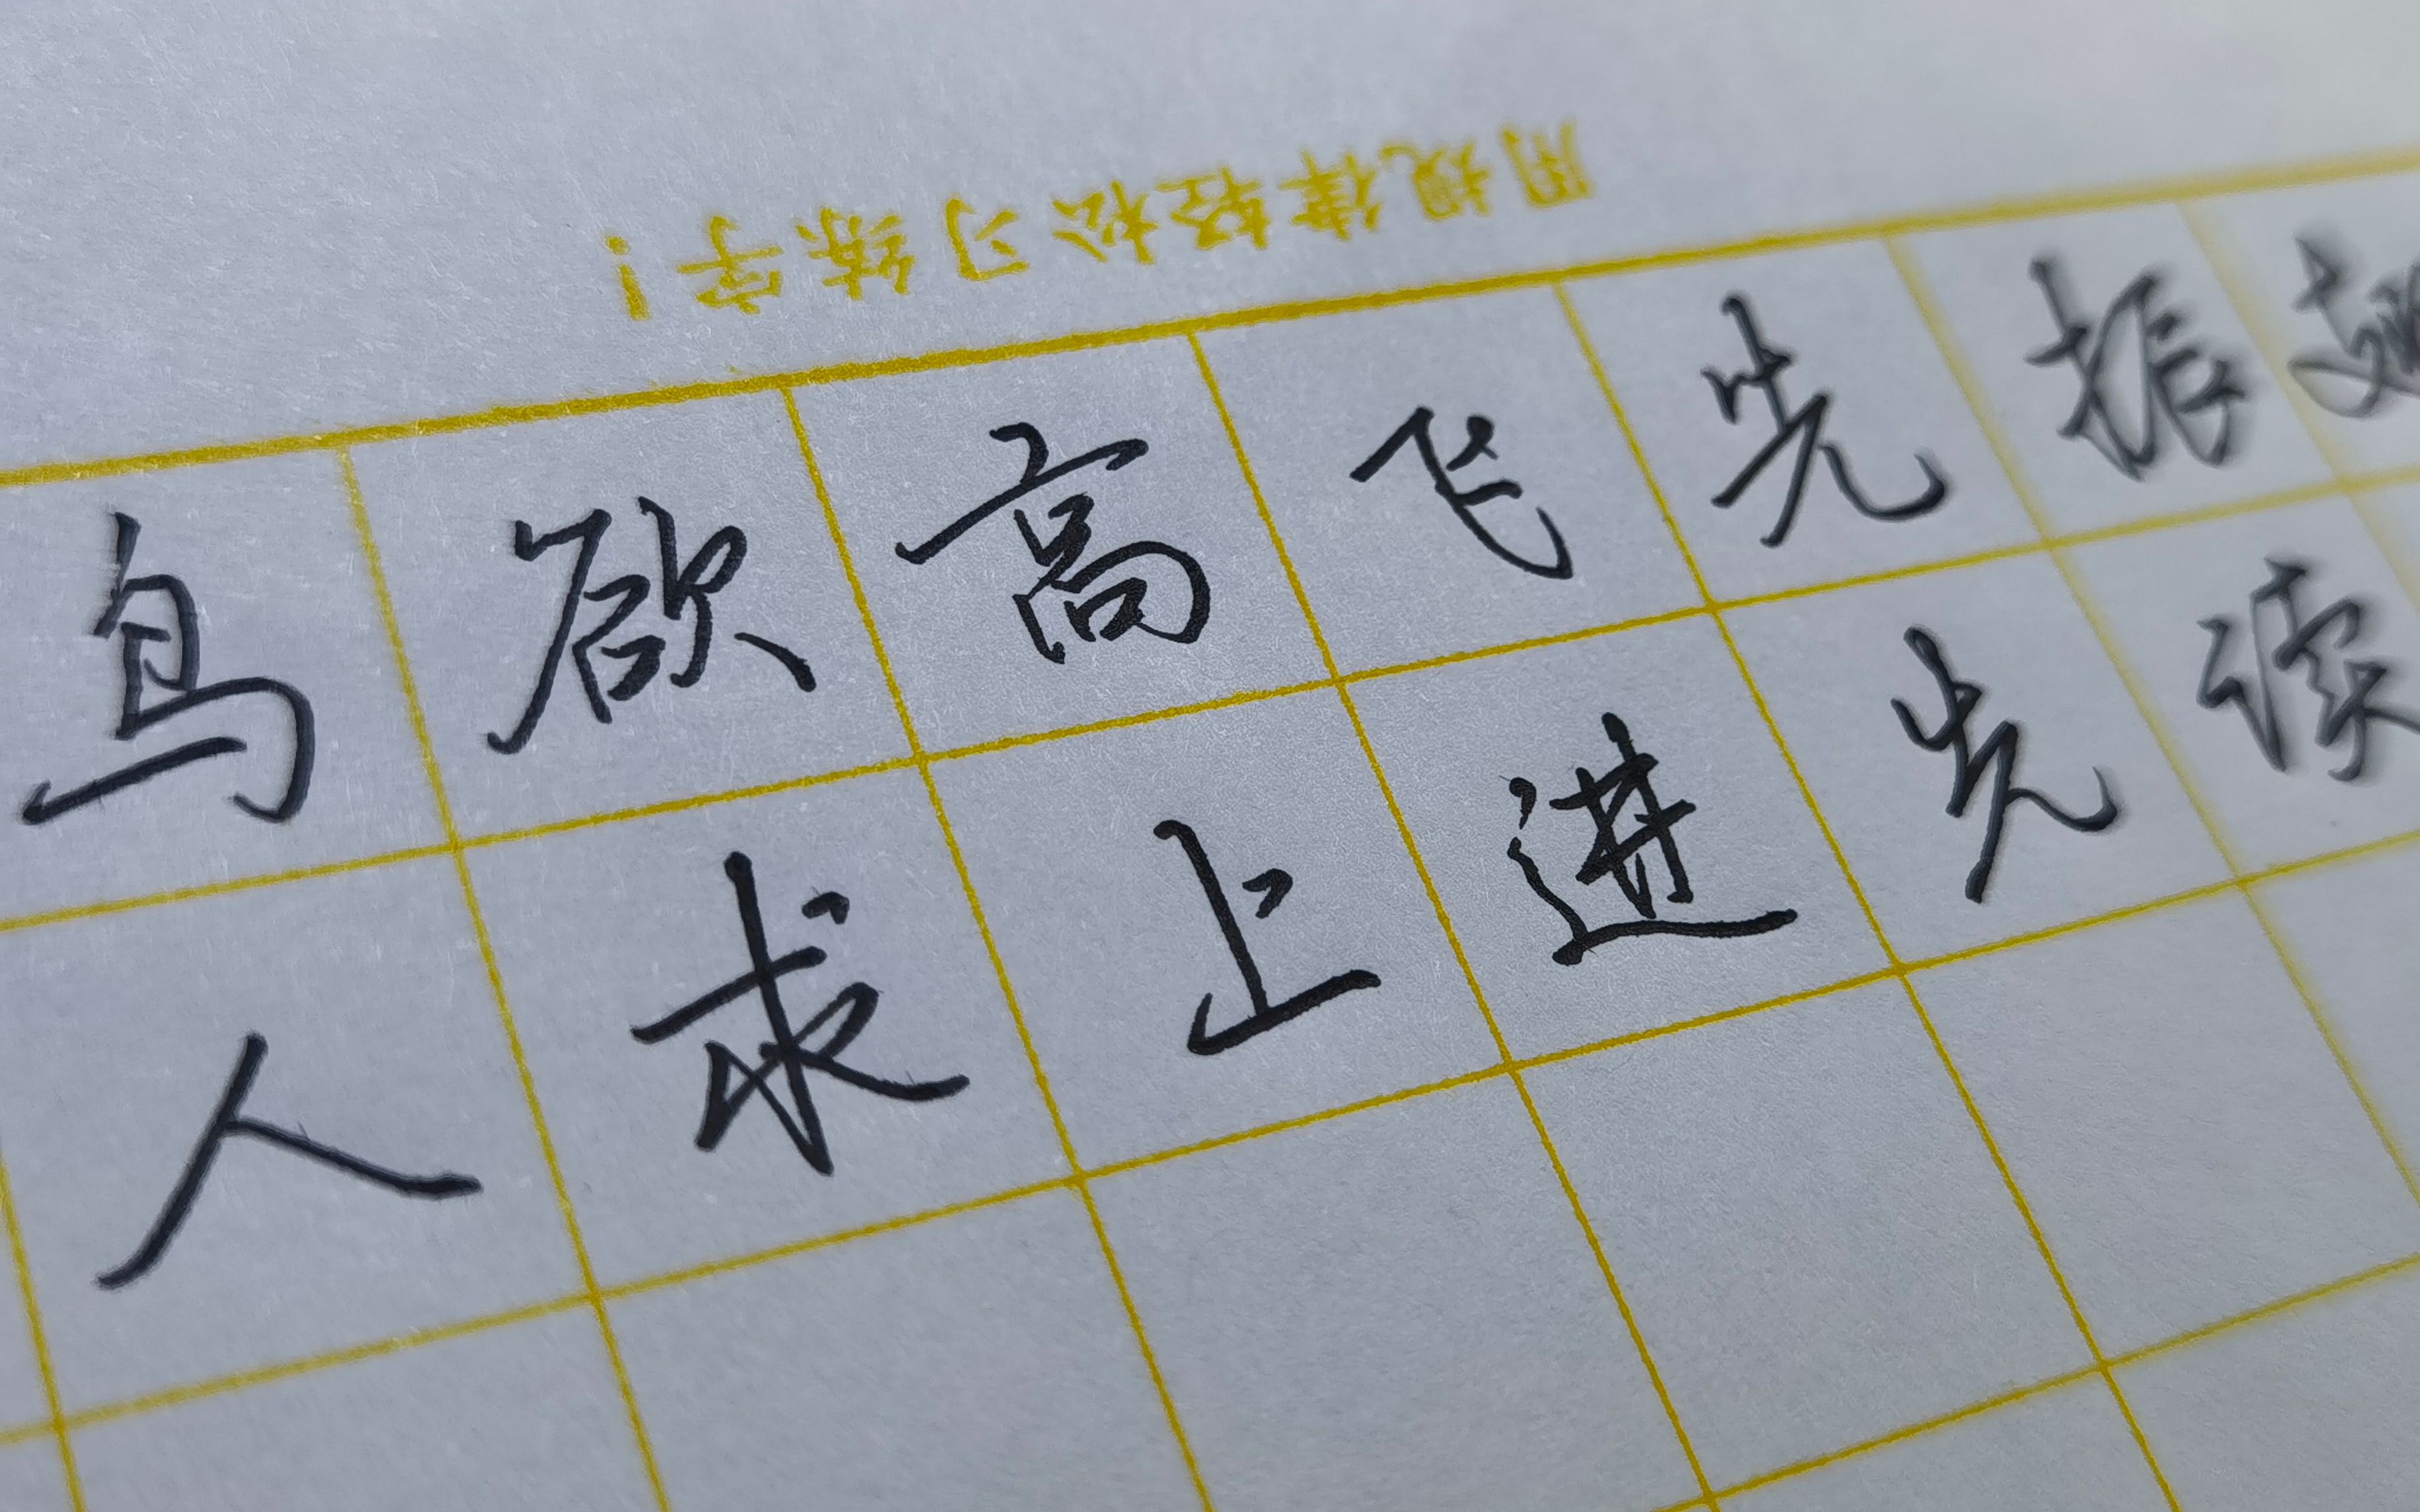 用规律轻松习练字！
鸟欲高飞先振
人求上进先读